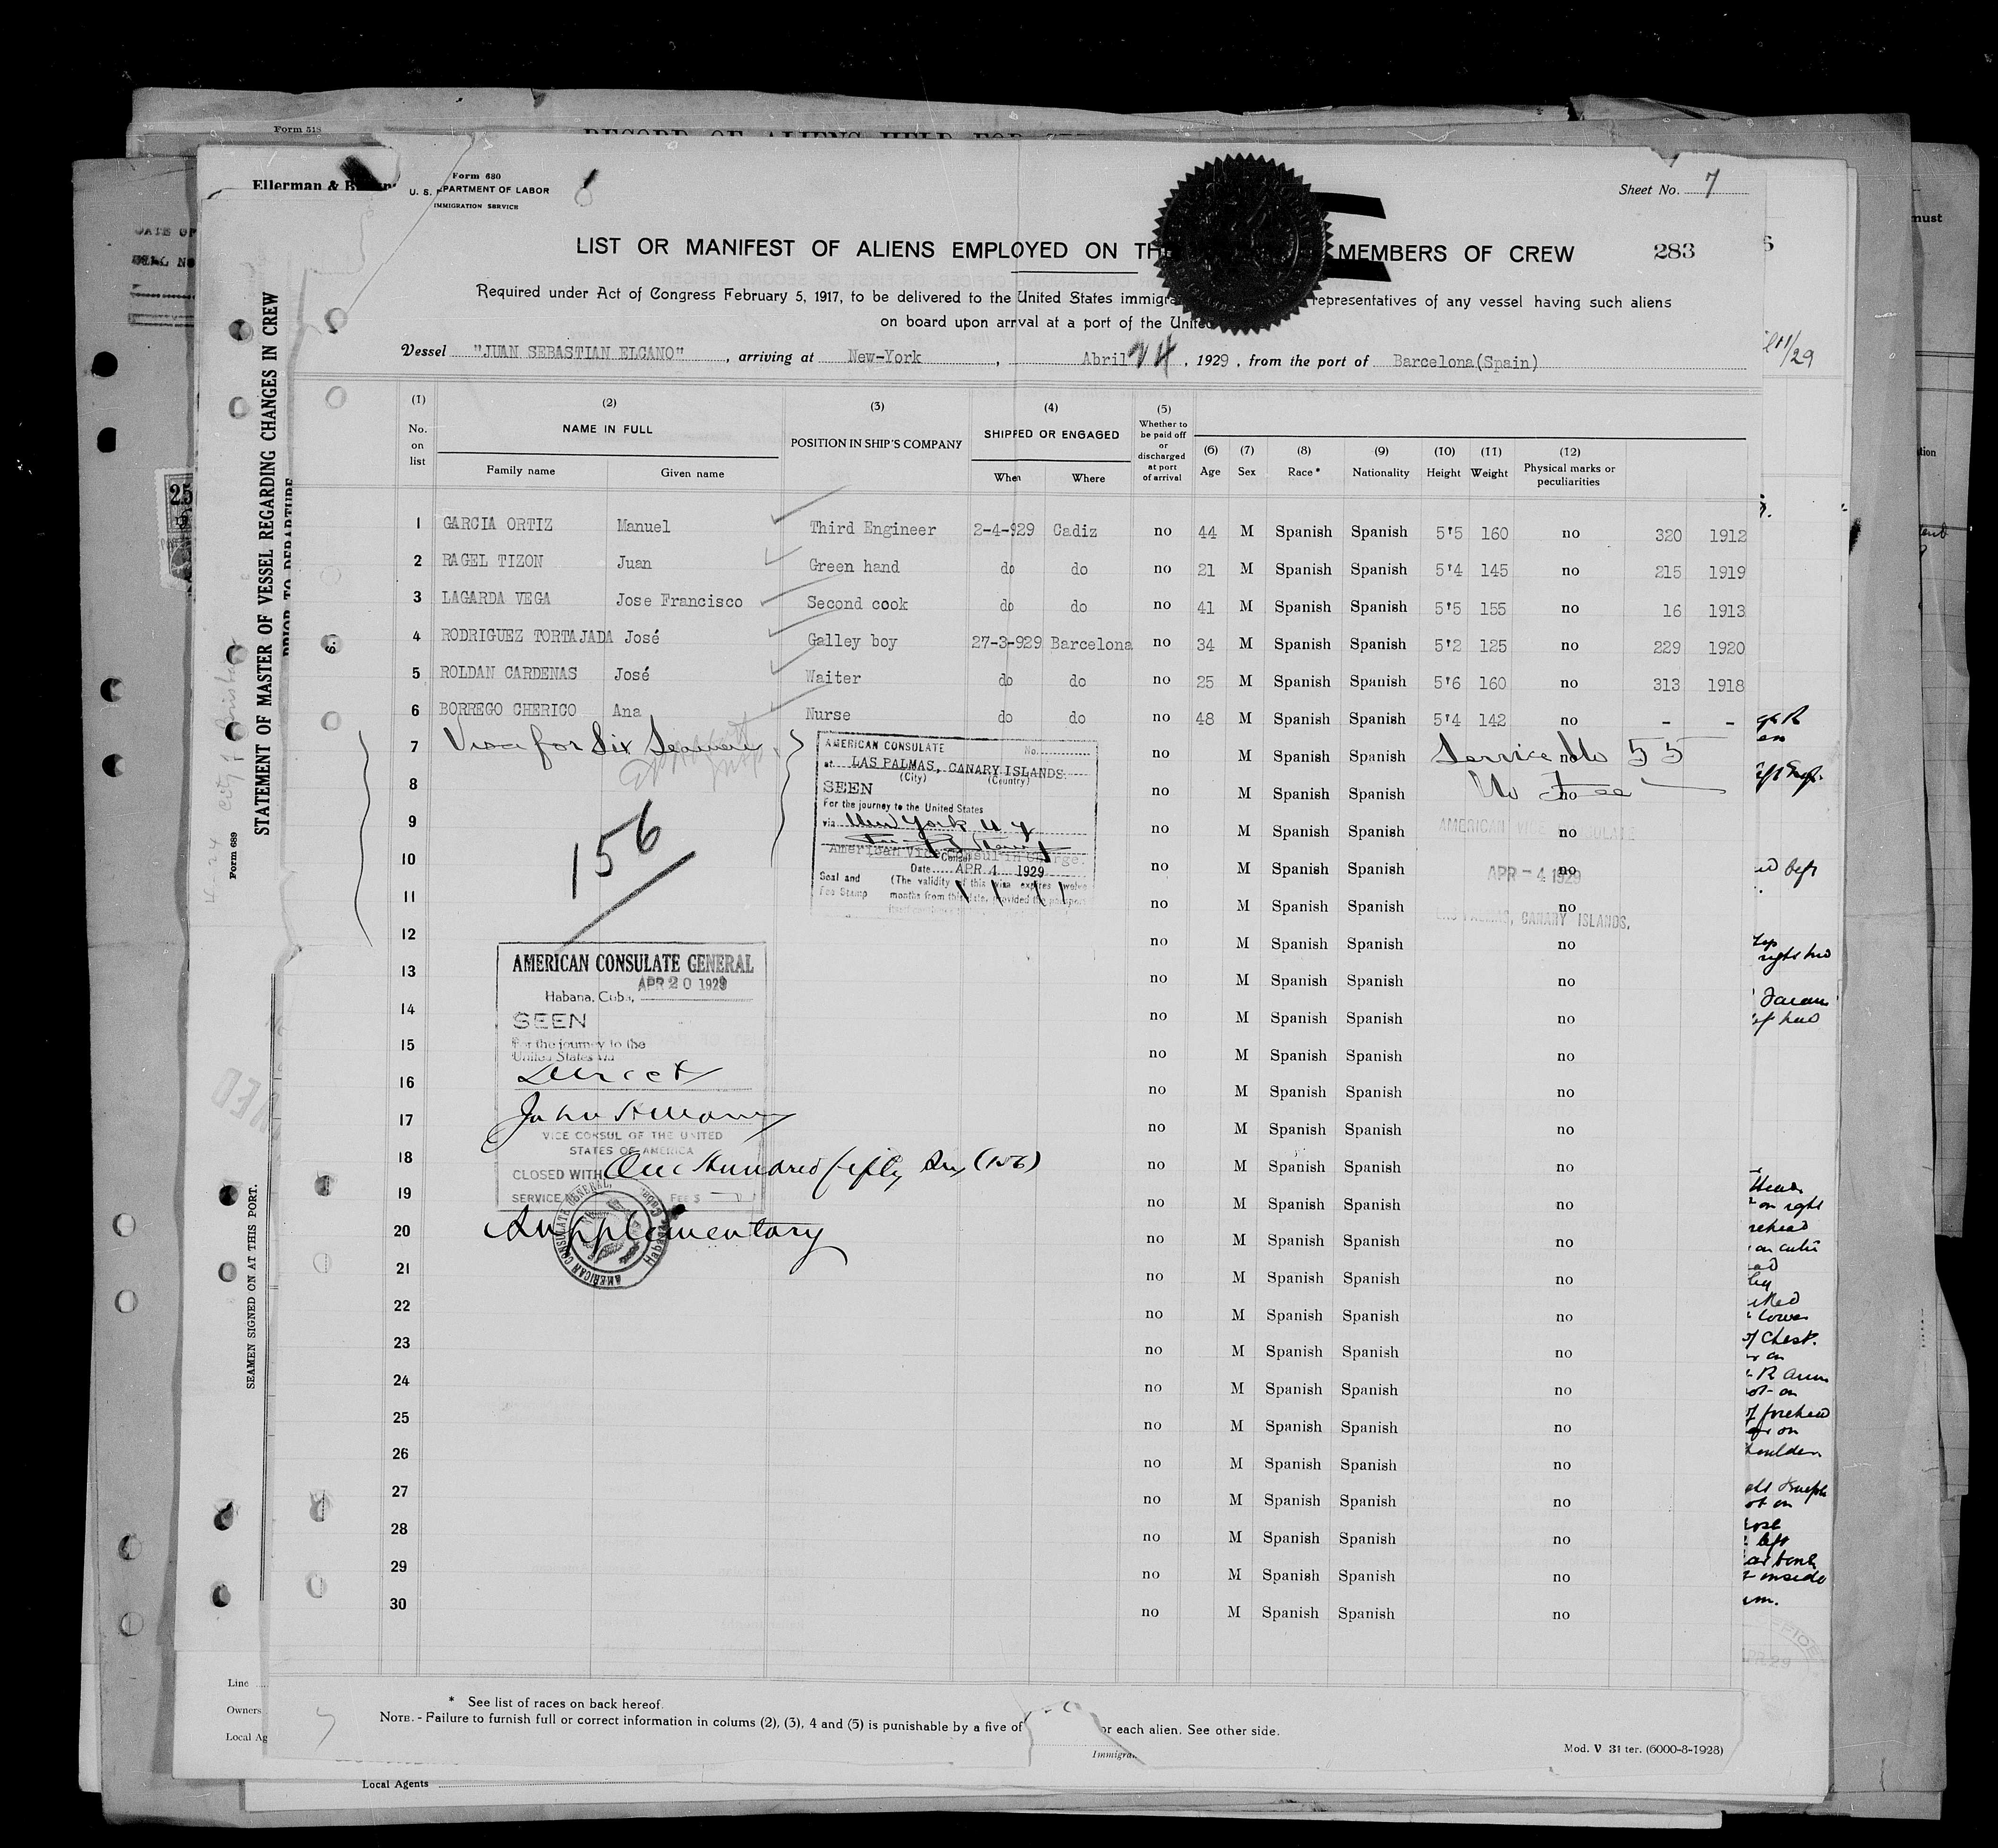 Form 518
RECORD OF ALIENS HELD FOR
Ellerman &
Form 680
U. S. DEPARTMENT OF LABOR
IMMIGRATION SERVICE
Sheet No. 7
LIST OR MANIFEST OF ALIENS EMPLOYED ON TH MEMBERS OF CREW
283
Required under Act of Congress February 5, 1917, to be delivered to the United States immigra representatives of any vessel having such aliens
on board upon arrival at a port of the Unite
Vessel "JUAN SEBASTIAN ELCANO", arriving at New-York, Abril 24, 1929, from the port of Barcelona(Spain)
(1) No. on list
(2) NAME IN FULL
Family name Given name
(3) POSITION IN SHIP'S COMPANY
(4) SHIPPED OR ENGAGED
When Where
(5) Whether to be paid off or discharged at port of arrival
(6) Age
(7) Sex
(8) Race*
(9) Nationality
(10) Height
(11) Weight
(12) Physical marks or peculiarities
1 GARCIA ORTIZ Manuel Third Engineer 2-4-929 Cadiz no 44 M Spanish Spanish 5'5 160 no 320 1912
2 RAGEL TIZON Juan Green hand do do no 21 M Spanish Spanish 5'4 145 no 215 1919
3 LAGARDA VEGA Jose Francisco Second cook do do no 41 M Spanish Spanish 5'5 155 no 16 1913
4 RODRIGUEZ TORTAJADA José Galley boy 27-3-929 Barcelona no 34 M Spanish Spanish 5'2 125 no 229 1920
5 ROLDAN CARDENAS José Waiter do do no 25 M Spanish Spanish 5'6 160 no 313 1918
6 BORREGO CHERICO Ana Nurse do do no 48 M Spanish Spanish 5'4 142 no - -
7 Visa for Six Seamen no M Spanish Spanish no Service No 55
8 no M Spanish Spanish no No fee
9 no M Spanish Spanish no
10 no M Spanish Spanish no
11 no M Spanish Spanish no
12 no M Spanish Spanish no
13 no M Spanish Spanish no
14 no M Spanish Spanish no
15 no M Spanish Spanish no
16 no M Spanish Spanish no
17 no M Spanish Spanish no
18 no M Spanish Spanish no
19 no M Spanish Spanish no
20 no M Spanish Spanish no
21 no M Spanish Spanish no
22 no M Spanish Spanish no
23 no M Spanish Spanish no
24 no M Spanish Spanish no
25 no M Spanish Spanish no
26 no M Spanish Spanish no
27 no M Spanish Spanish no
28 no M Spanish Spanish no
29 no M Spanish Spanish no
30 no M Spanish Spanish no
AMERICAN CONSULATE No.
at LAS PALMAS, CANARY ISLANDS.
(City) (Country)
SEEN
For the journey to the United States
via New York N Y
American Vice Consul in Charge.
Consul
Date APR 4 1929
Seal and Fee Stamp
(The validity of this visa expires twelve
months from this date, provided the passport
AMERICAN VICE CONSULATE
APR - 4 1929
LAS PALMAS, CANARY ISLANDS.
156
AMERICAN CONSULATE GENERAL
APR 20 1929
Habana, Cuba,
SEEN
For the journey to the
United States via
Direct
VICE CONSUL OF THE UNITED
STATES OF AMERICA
CLOSED WITH One Hundred fifty Six (156)
SERVICE FEE $
Supplementary
AMERICAN CONSULATE GENERAL, Habana, Cuba
* See list of races on back hereof.
NOTE. - Failure to furnish full or correct information in colums (2), (3), 4 and (5) is punishable by a five of or each alien. See other side.
Immigra
Mod. V 31 ter. (6000-8-1928)
STATEMENT OF MASTER OF VESSEL REGARDING CHANGES IN CREW
PRIOR TO DEPARTURE
Form 689
SEAMEN SIGNED ON AT THIS PORT.
Line
Owners
Local Ag
Local Agents
25
must
/29